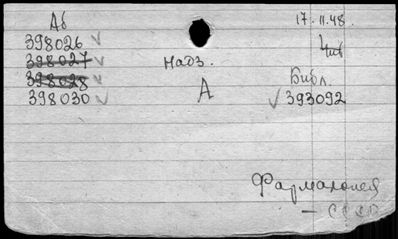 Аб
398026 ✓
398027 ✓
398028 ✓
398030 ✓
Надз.
А
17.11.48.
Чит
Библ
✓ 393092
Фармакопея
– СССР